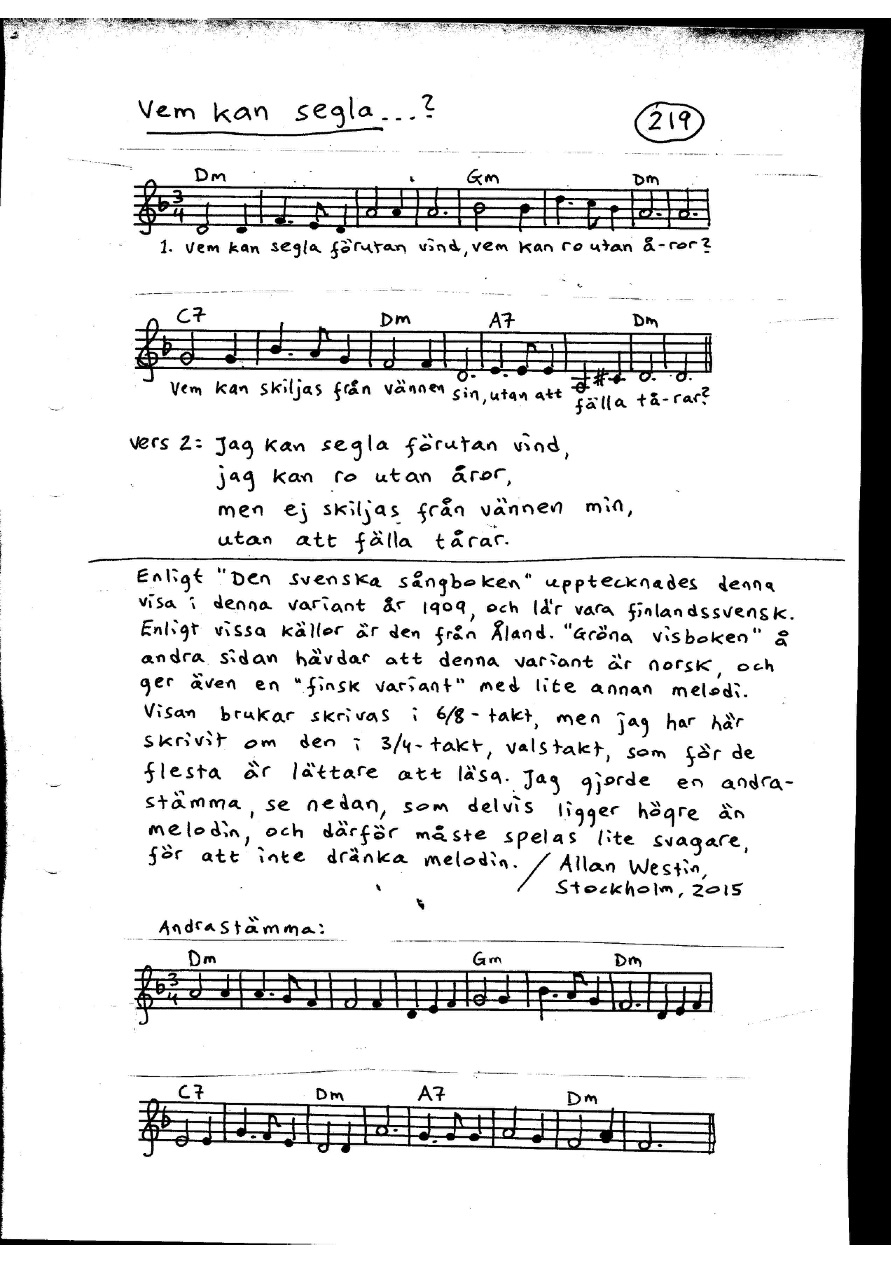 Vem kan segla...?
219
Dm Gm Dm
3
4
1. Vem kan segla förutan vind, vem kan ro utan å-ror?
C7 Dm A7 Dm
Vem kan skiljas från vännen sin, utan att fälla tå-rar?
vers 2: Jag kan segla förutan vind,
jag kan ro utan åror,
men ej skiljas från vännen min,
utan att fälla tårar.
Enligt "Den svenska sångboken" upptecknades denna
visa i denna variant år 1909, och lär vara finlandssvensk.
Enligt vissa källor är den från Åland. "Gröna visboken" å
andra sidan hävdar att denna variant är norsk, och
ger även en "finsk variant" med lite annan melodi.
Visan brukar skrivas i 6/8-takt, men jag har här
skrivit om den i 3/4-takt, valstakt, som för de
flesta är lättare att läsa. Jag gjorde en andra-
stämma, se nedan, som delvis ligger högre än
melodin, och därför måste spelas lite svagare,
för att inte dränka melodin. / Allan Westin,
Stockholm, 2015
Andrastämma:
Dm Gm Dm
3
4
C7 Dm A7 Dm